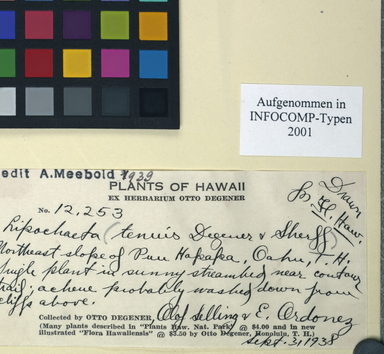 Aufgenommen in
INFOCOMP-Typen
2001
edit A. Meebold 1939
PLANTS OF HAWAII
EX HERBARIUM OTTO DEGENER
Drawn
for Fl. Haw.
No. 12,253
Lipochaeta (tenuis Degener & Sherff)
Northeast slope of Puu Hapapa, Oahu, T. H.
Single plant in sunny streambed near contour
trail; achene probably washed down from
cliffs above.
Collected by OTTO DEGENER, Olof Selling & E. Ordonez
(Many plants described in "Plants Haw. Nat. Park" @ $4.00 and in new
illustrated "Flora Hawaiiensis" @ $3.50 by Otto Degener, Honolulu, T. H.)
Sept. 3, 1938